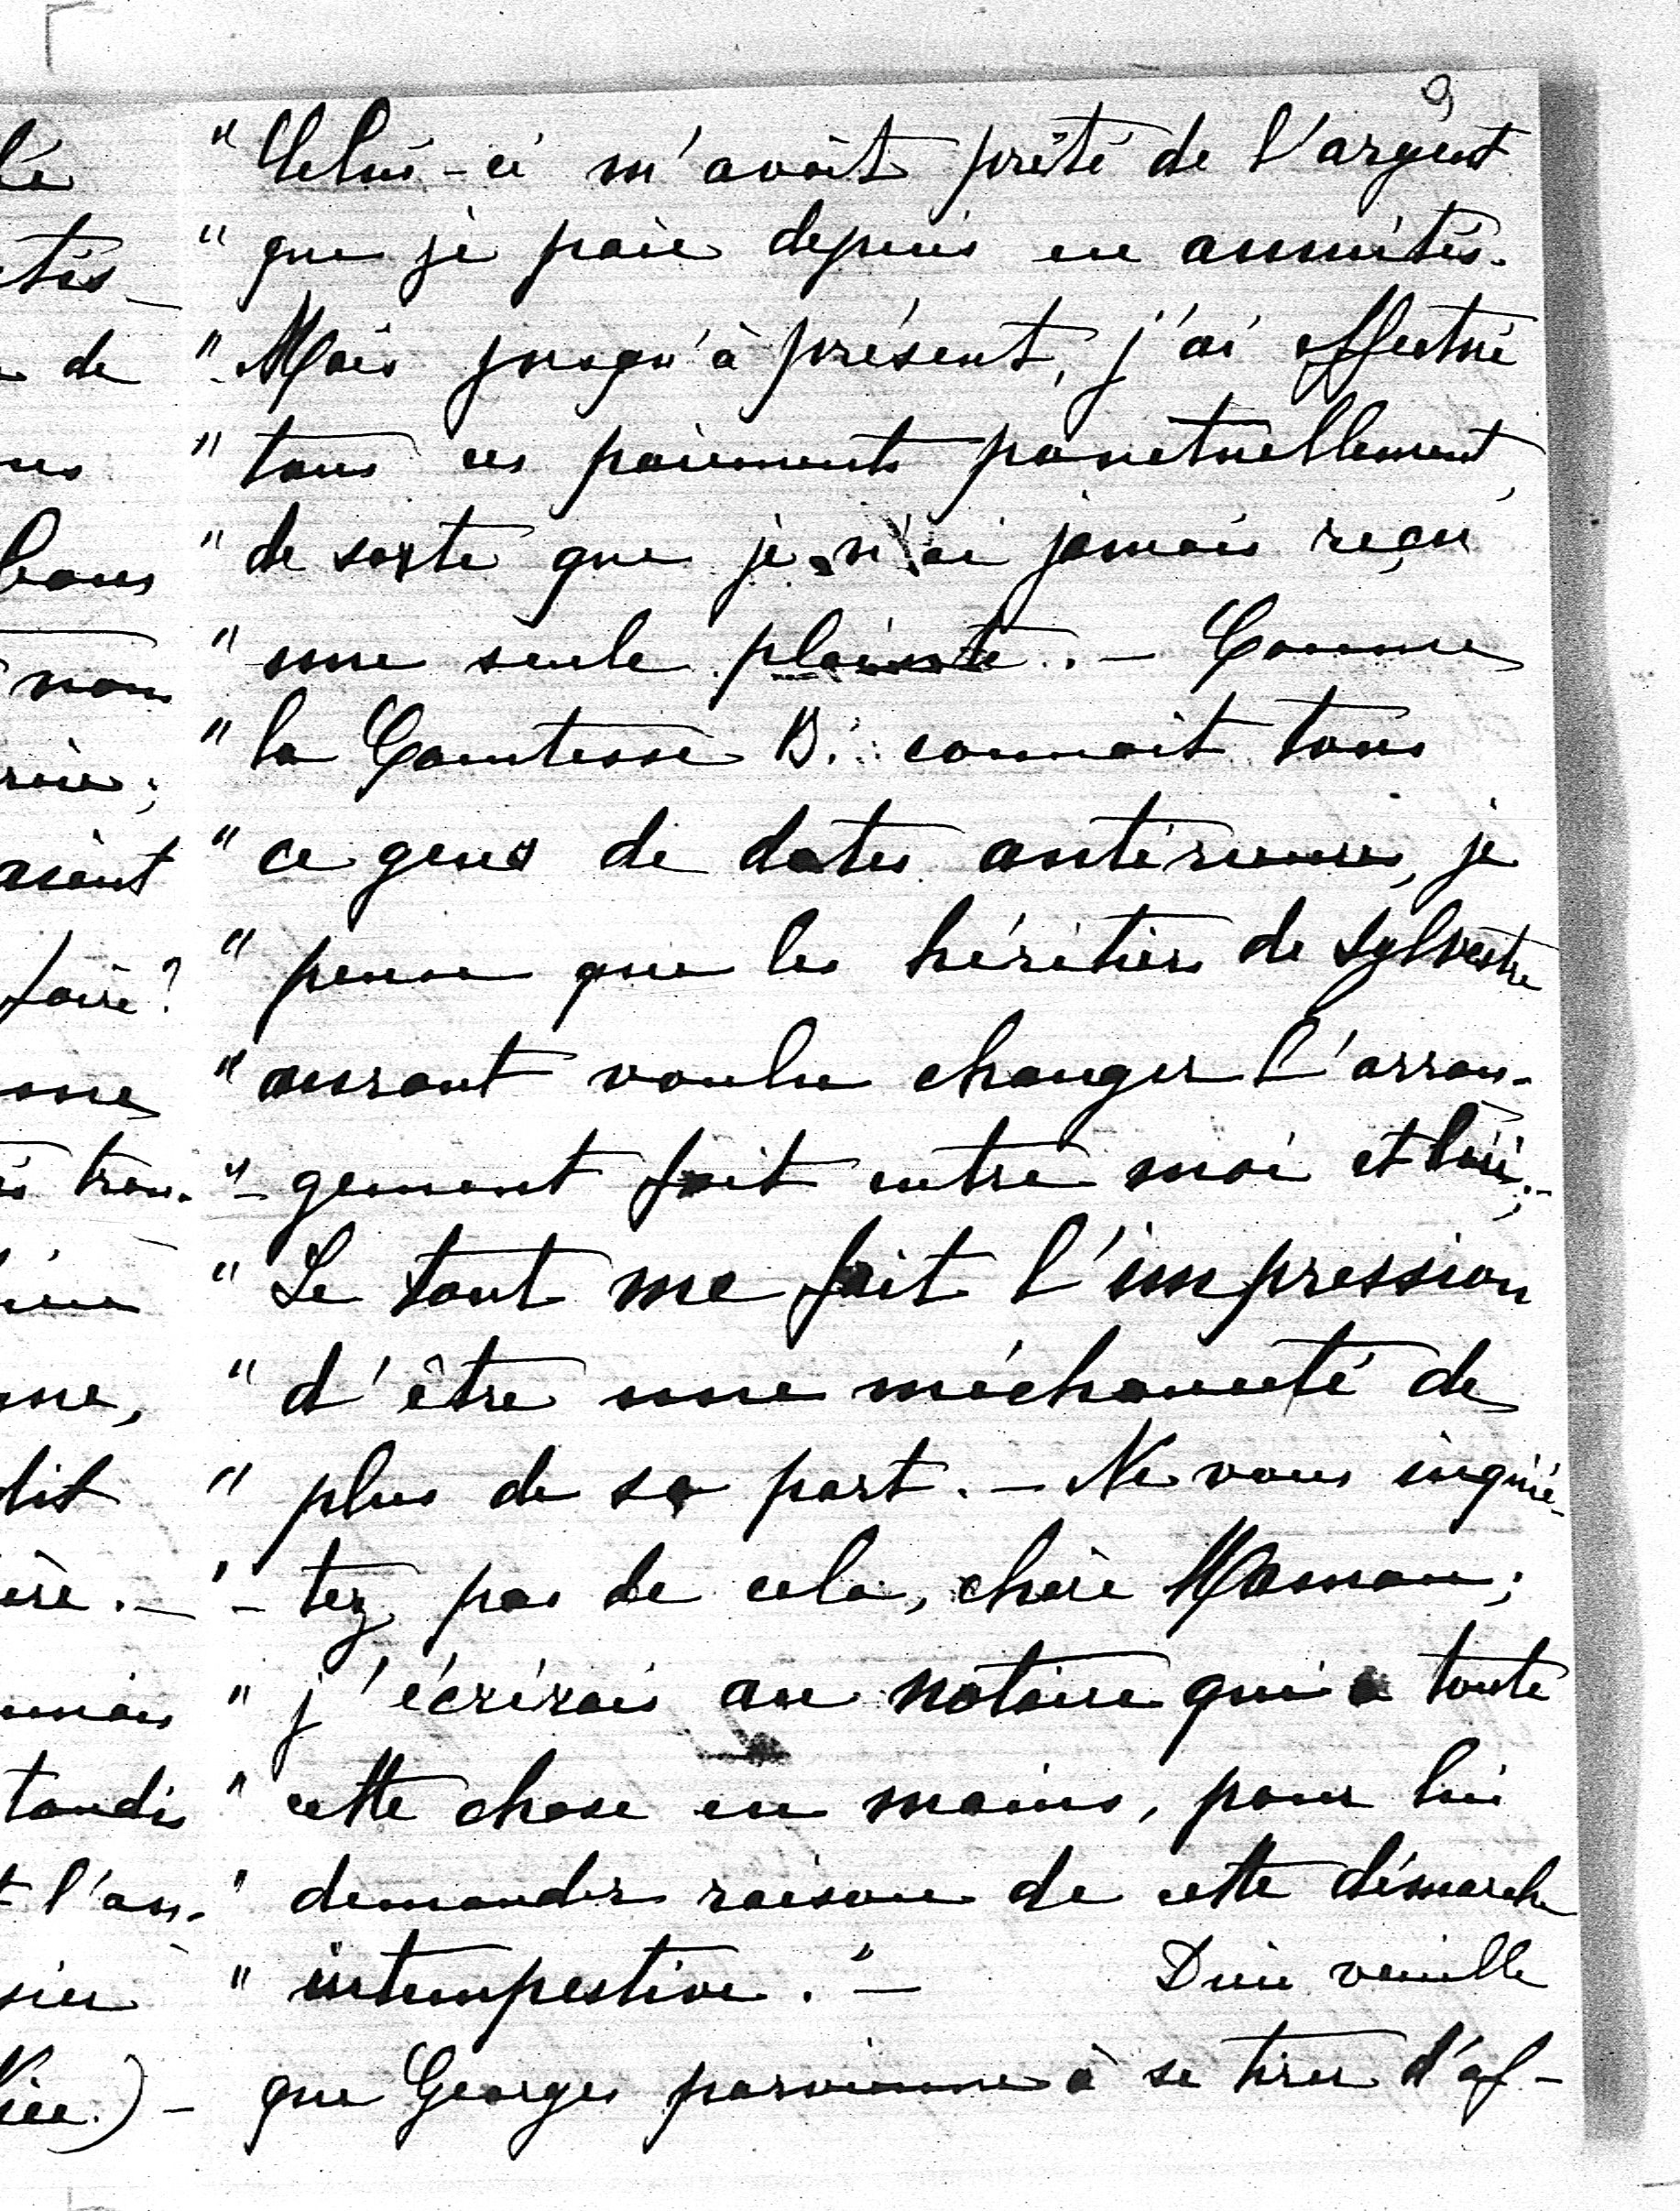 9
" Celui-ci m'avait prêté de l'argent
" que je paie depuis en annuités.
" Mais jusqu'à présent, j'ai effectué
" tous ces paiements ponctuellement,
" de sorte que je n'ai jamais reçu
" une seule plainte. — Comme
" la Comtesse B. connait tous
" ce gens de dates antérieures, je
" pense que les héritiers de Sylvestre
" auront voulu changer l'arran-
" - gement fait entre moi et lui; -
" Le tout me fait l'impression
" d'être une méchanceté de
" plus de sa part. — Ne vous inquié-
" - tez pas de cela, chère Maman;
" j'écrirais au notaire qui a toute
" cette chose en mains, pour lui
" demander raison de cette démarche
" intempestive. " — Dieu veuille
que Georges parvienne à se tirer d'af-
de
nous
faire?
dit
tandis